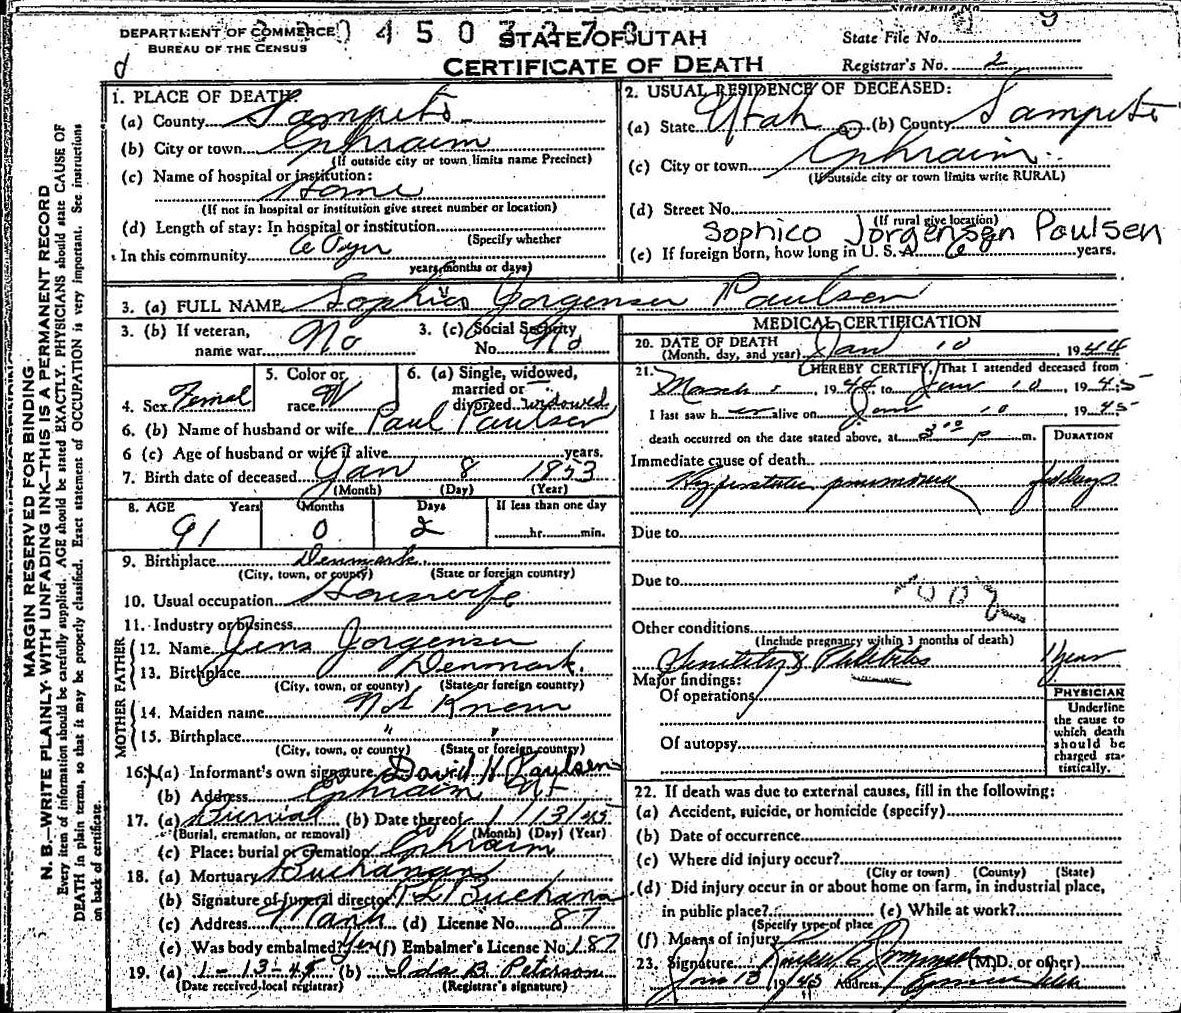 DEPARTMENT OF COMMERCE
BUREAU OF THE CENSUS
STATE OF UTAH
CERTIFICATE OF DEATH
State File No. 9
Registrar's No. 2
d
MARGIN RESERVED FOR BINDING
N. B.—WRITE PLAINLY, WITH UNFADING INK—THIS IS A PERMANENT RECORD
Every item of information should be carefully supplied. AGE should be stated EXACTLY. PHYSICIANS should state CAUSE OF
DEATH in plain terms, so that it may be properly classified. Exact statement of OCCUPATION is very important. See instructions
on back of certificate.
1. PLACE OF DEATH:
(a) County Sampete
(b) City or town Ephraim
(If outside city or town limits name Precinct)
(c) Name of hospital or institution:
Home
(If not in hospital or institution give street number or location)
(d) Length of stay: In hospital or institution
(Specify whether
In this community 60 yr
years, months or days)
2. USUAL RESIDENCE OF DECEASED:
(a) State Utah (b) County Sampete
(c) City or town Ephraim
(If outside city or town limits write RURAL)
(d) Street No.
(If rural give location)
Sophico Jorgensen Paulsen
(e) If foreign born, how long in U. S. A. 60 years.
3. (a) FULL NAME Sophico Jorgensen Paulsen
3. (b) If veteran,
name war No
3. (c) Social Security
No. No
4. Sex Femal
5. Color or
race W
6. (a) Single, widowed,
married or
divorced widowed
6. (b) Name of husband or wife Paul Paulsen
6 (c) Age of husband or wife if alive years.
7. Birth date of deceased Jan 8 1853
(Month) (Day) (Year)
8. AGE Years Months Days If less than one day
91 0 2 hr. min.
9. Birthplace Denmark
(City, town, or county) (State or foreign country)
10. Usual occupation Housewife
11. Industry or business
FATHER
12. Name Jens Jorgensen
13. Birthplace Denmark
(City, town, or county) (State or foreign country)
MOTHER
14. Maiden name Not Known
15. Birthplace " "
(City, town, or county) (State or foreign country)
16. (a) Informant's own signature David H Paulsen
(b) Address Ephraim Ut
17. (a) Burial (b) Date thereof 1/13/45
(Burial, cremation, or removal) (Month) (Day) (Year)
(c) Place: burial or cremation Ephraim
18. (a) Mortuary Buchanan
(b) Signature of funeral director
(c) Address Manti (d) License No. 87
(e) Was body embalmed? Yes (f) Embalmer's License No. 187
19. (a) 1-13-45 (b) Ida B. Peterson
(Date received local registrar) (Registrar's signature)
MEDICAL CERTIFICATION
20. DATE OF DEATH
(Month, day, and year) Jan 10, 1944
21. I HEREBY CERTIFY, That I attended deceased from
March 1944 to Jan 10, 1945
I last saw her alive on Jan 10 1945
death occurred on the date stated above, at 3 00 p m.
DURATION
Immediate cause of death
Hypostatic pneumonia Days
Due to
Due to
Other conditions
(Include pregnancy within 3 months of death)
1 year
Major findings:
Of operations
Of autopsy
PHYSICIAN
Underline
the cause to
which death
should be
charged sta-
tistically.
22. If death was due to external causes, fill in the following:
(a) Accident, suicide, or homicide (specify)
(b) Date of occurrence
(c) Where did injury occur?
(City or town) (County) (State)
(d) Did injury occur in or about home on farm, in industrial place,
in public place? (e) While at work?
(Specify type of place)
(f) Means of injury
23. Signature (M.D. or other)
Jan 13 1945 Address